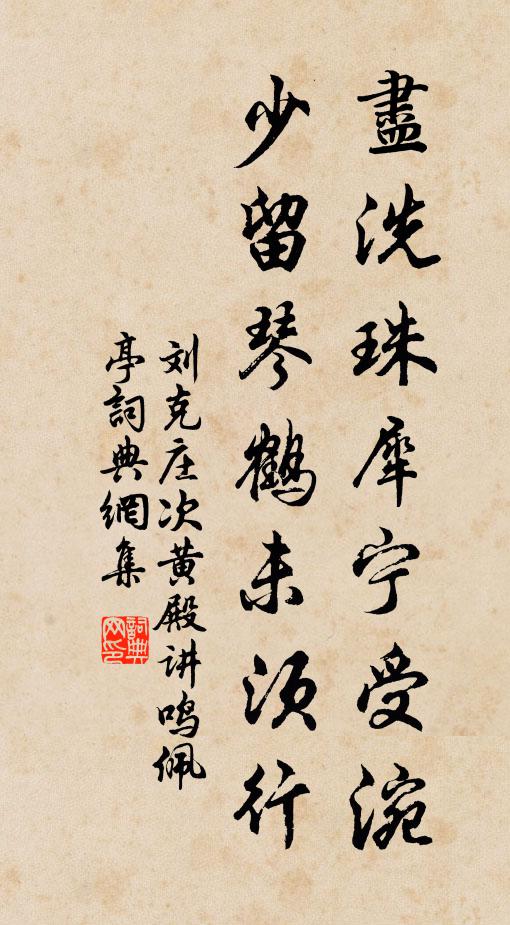 盡洗珠犀宁受涴
少留琴鶴未須行
刘克庄次黄殿讲鸣佩
亭詞典網集
詞典網印